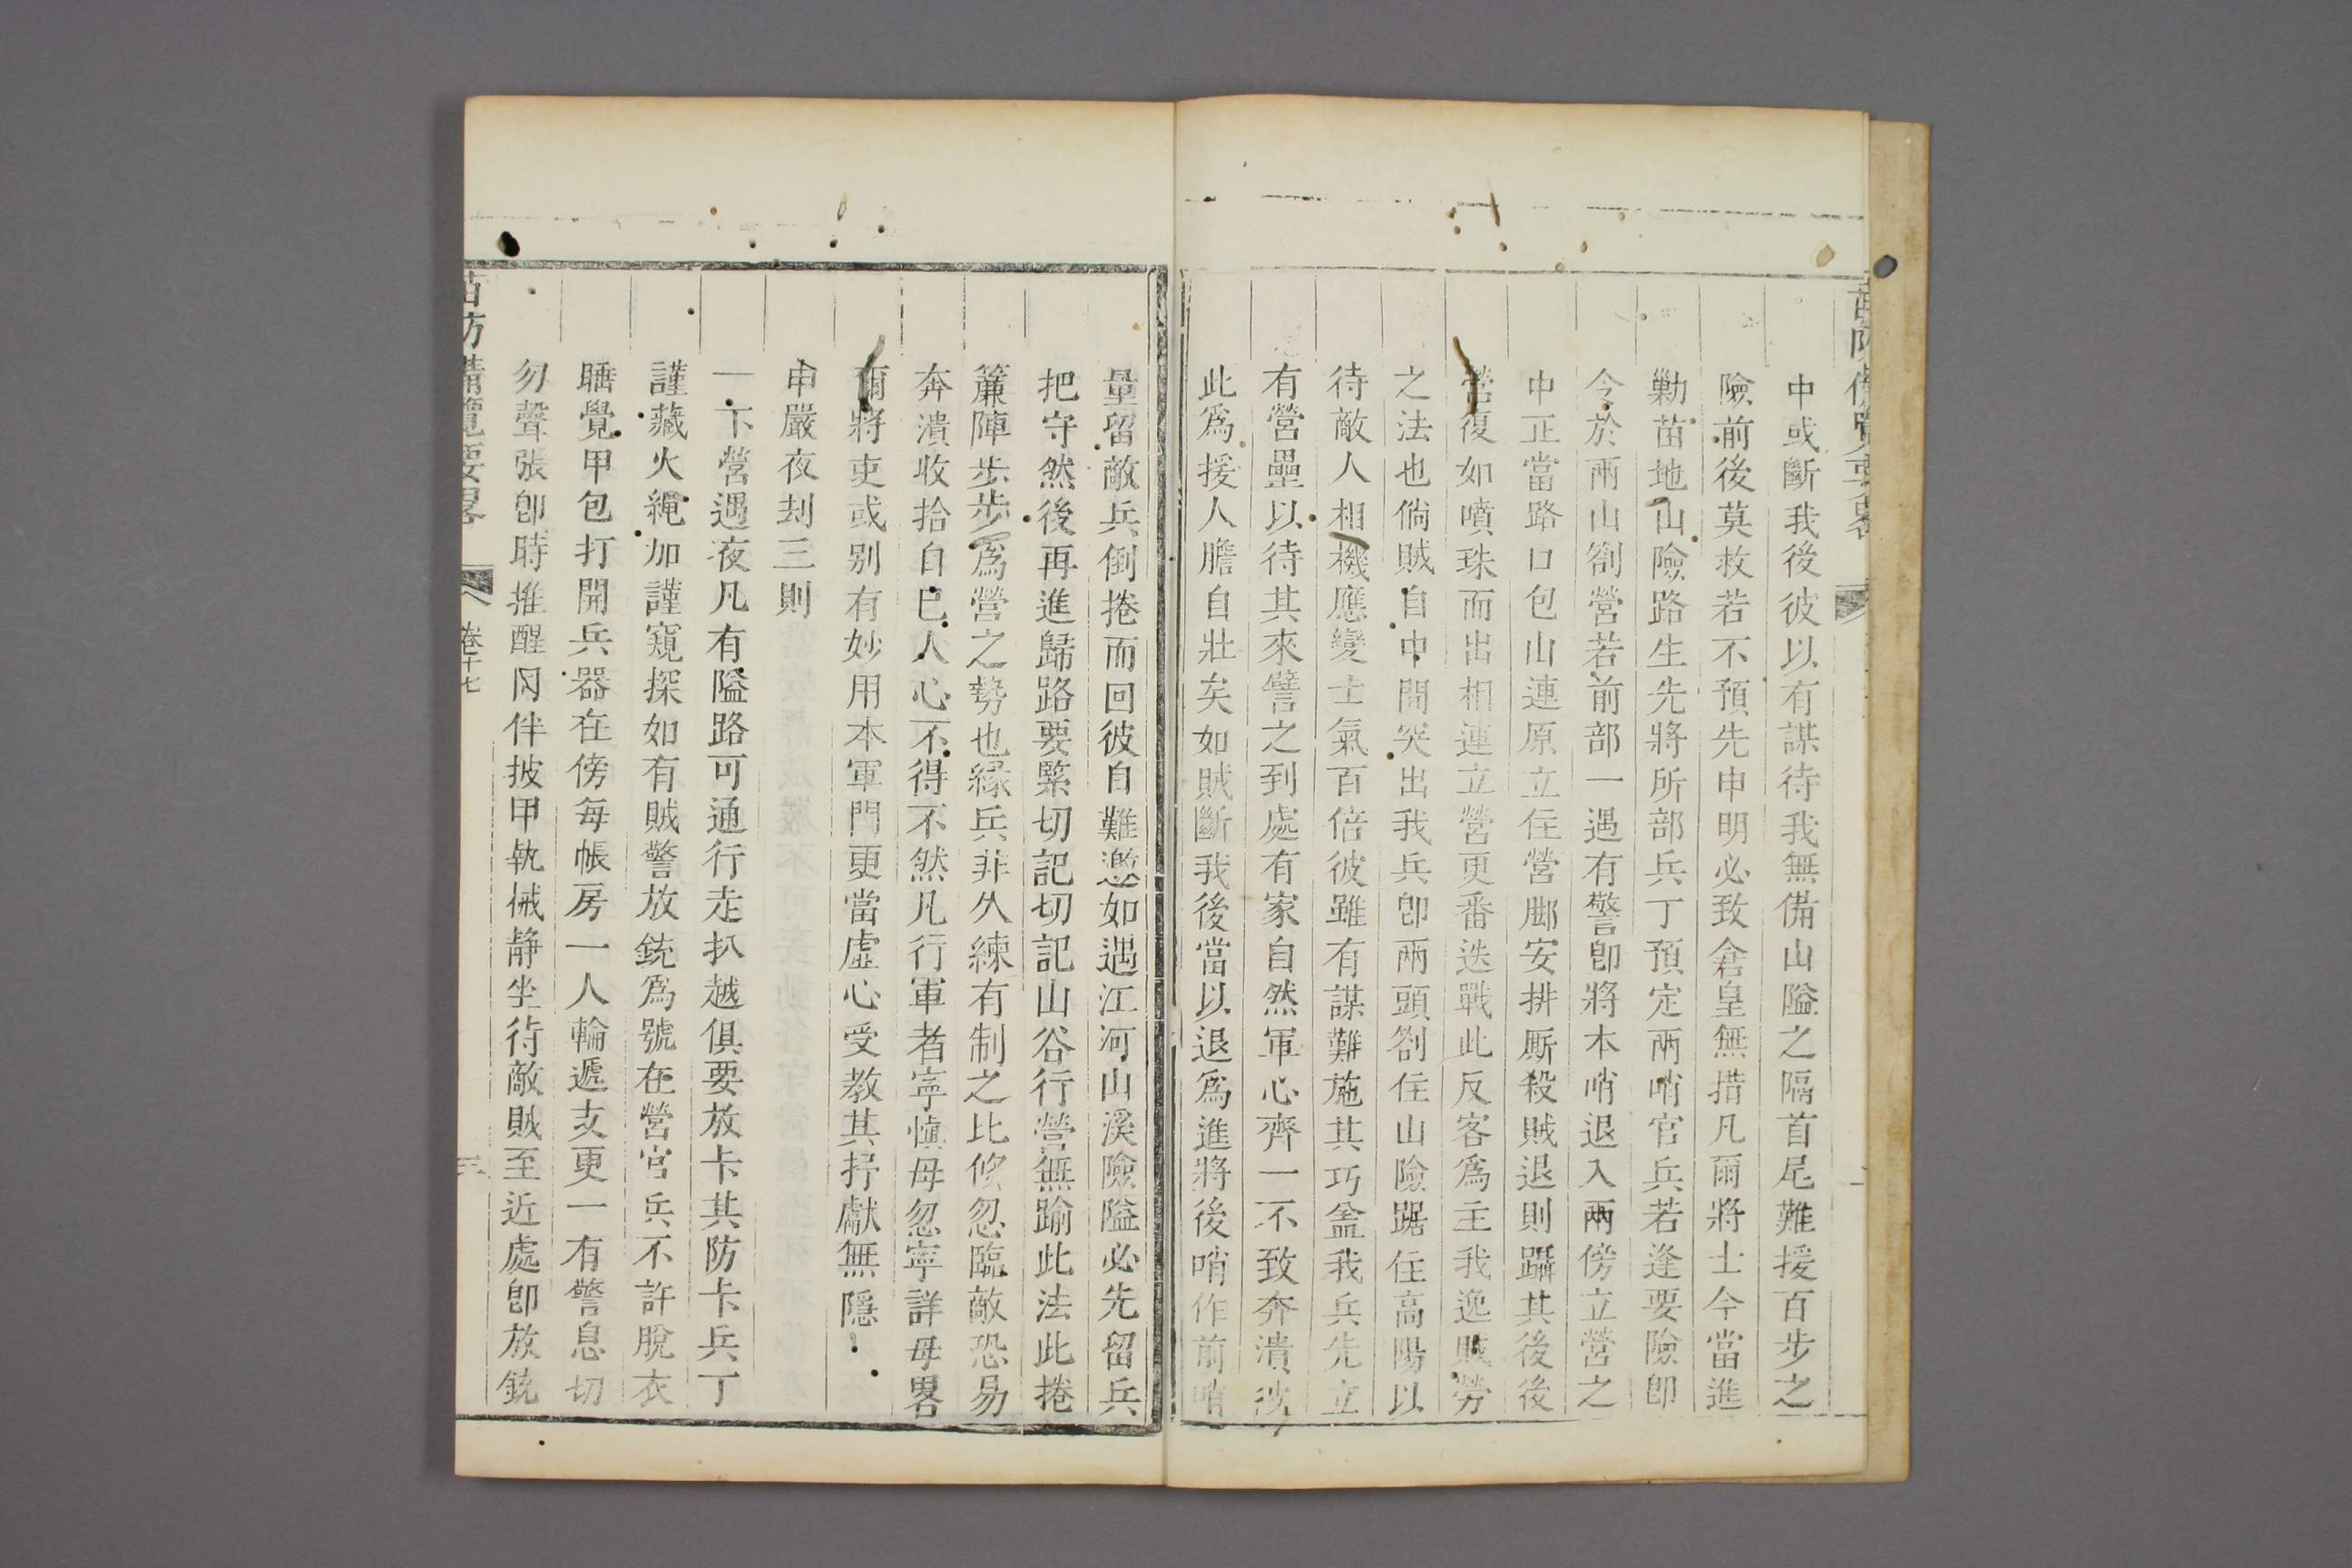 苗防備覽要畧
中或斷我後彼以有謀待我無備山隘之隔首尾難援百步之
險前後莫救若不預先申明必致倉皇無措凡爾將士今當進
勦苗地山險路生先將所部兵丁預定兩哨官兵若逢要險卽
令於兩山劄營若前部一遇有警卽將本哨退入兩傍立營之
中正當路口包山連原立住營脚安排厮殺賊退則躡其後後
營復如噴珠而出相連立營更番迭戰此反客爲主我逸賊勞
之法也倘賊自中間突出我兵卽兩頭劄住山險踞住高陽以
待敵人相機應變士氣百倍彼雖有謀難施其巧盖我兵先立
有營壘以待其來譬之到處有家自然軍心齊一不致奔潰彼
此爲援人膽自壯矣如賊斷我後當以退爲進將後哨作前哨
量留敵兵倒捲而回彼自難邀如遇江河山溪險隘必先留兵
把守然後再進歸路要緊切記切記山谷行營無踰此法此捲
簾陣步步爲營之勢也緣兵非久練有制之比倏忽臨敵恐易
奔潰收拾自己人心不得不然凡行軍者寧愼毋忽寧詳毋畧
爾將吏或别有妙用本軍門更當虛心受教其抒獻無隱
申嚴夜刦三則
一下營遇夜凡有隘路可通行走扒越俱要放卡其防卡兵丁
謹藏火繩加謹窺探如有賊警放銃爲號在營官兵不許脫衣
睡覺甲包打開兵器在傍每帳房一人輪遞支更一有警息切
勿聲張卽時推醒同伴披甲執械靜坐待敵賊至近處卽放銃
苗防備覽要畧
卷十七
三